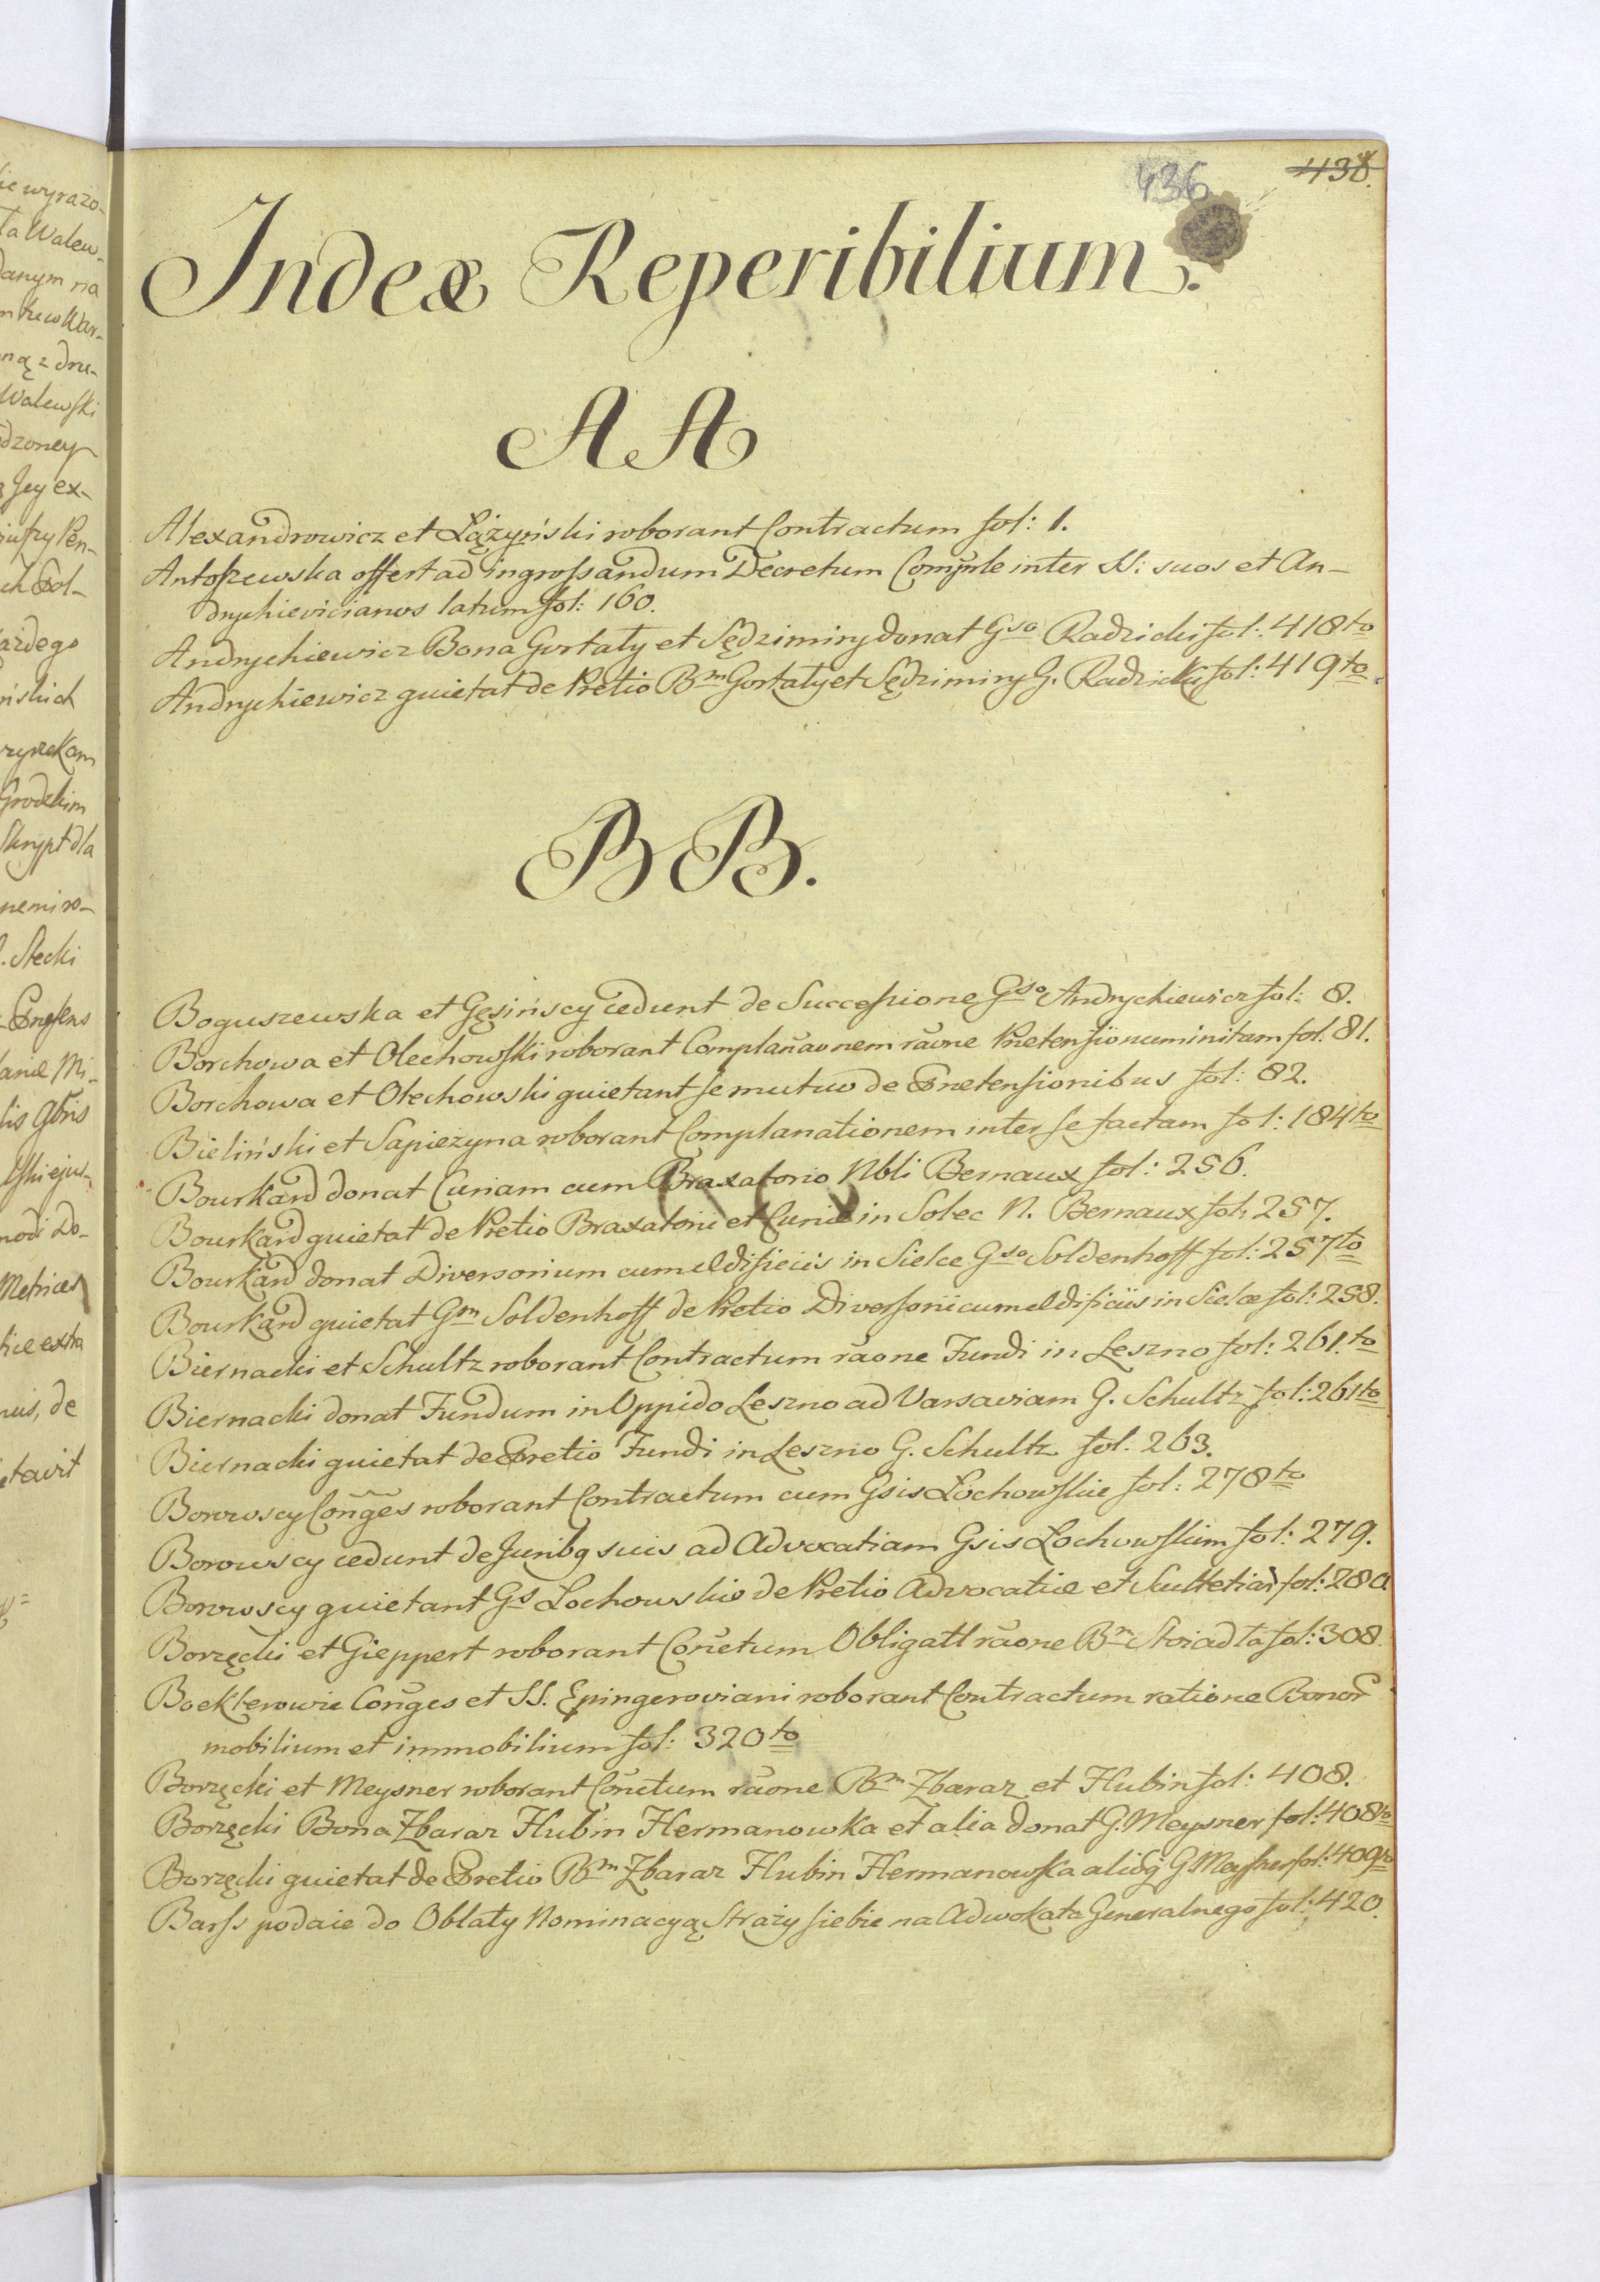 436
438.
Index Reperibilium.
AA
Alexandrowicz et Łążyński roborant Contractum fol: 1.
Antoszewska offert ad ingrossandum Decretum Comprle inter SS: suos et An-
drychievicianos latum fol: 160.
Andrychiewicz Bona Gortaty et Sędzimiry donat Gso Radzicki fol: 418to
Andrychiewicz quietat de Pretio Bm Gortaty et Sędzimiry G. Radzicki fol: 419to
BB.
Boguszewska et Gęsińscy cedunt de Successione Gso Andrychiewicz fol: 8.
Borchowa et Olechowski roborant Complanaonem raone Pretensionum initam fol. 81.
Borchowa et Olechowski quietant se mutuo de Pretensionibus fol: 82.
Bieliński et Sapieżyna roborant Complanationem inter se factam fol: 184to
Bourkard donat Curiam cum Braxatorio Nbli Bernaux fol: 256.
Bourkard quietat de Pretio Braxatorii et Curiæ in Solec N. Bernaux fol: 257.
Bourkard donat Diversorium cum ædificiis in Sielce Gso Soldenhoff fol: 257to
Bourkard quietat Gm Soldenhoff de Pretio Diversorii cum ædificiis in Sielce fol: 258.
Biernacki et Schultz roborant Contractum raone Fundi in Leszno fol: 261.to
Biernacki donat Fundum in Oppido Leszno ad Varsaviam G. Schultz fol: 261to
Biernacki quietat de Pretio Fundi in Leszno G. Schultz fol: 263.
Borowscy Conges roborant Contractum cum Gsis Łochowskie fol: 278to
Borowscy cedunt de Juribq suis ad Advocatiam Gsis Łochowskim fol: 279.
Borowscy quietant Gs Łochowskie de Pretio Advocatiæ et Scultetiæ fol: 280
Borzęcki et Gieppert roborant Conctum Obligatt raone Bm Stoiadła fol: 308.
Boeklerowie Conges et SS. Epingeroviani roborant Contractum ratione Bonor
mobilium et immobilium fol: 320to
Borzęcki et Meysner roborant Conctum raone Bm Zbaraz et Hubin fol: 408.
Borzęcki Bona Zbaraz Hubin Hermanowka et alia donat G. Meysner fol: 408to
Borzęcki quietat de Pretio Bm Zbaraz Hubin Hermanowka aliisq G Meysner fol: 409to
Barss podaie do Oblaty Nominacyą Straży siebie na Adwokata Generalnego fol: 420.